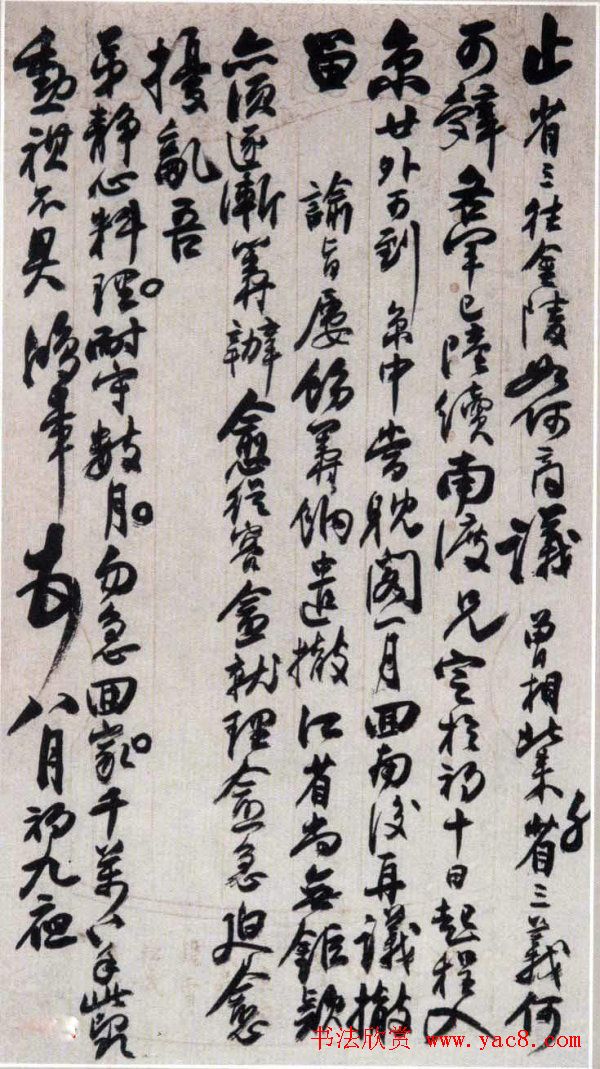 止省三往金陵如何商議曾相北來省三義何
可辭各軍已陸續南渡兄定於初十日起程入
京廿外可到京中當耽閣一月回南後再議撤
留
諭旨屢飭籌餉遣撤江省尚無鉅款
亦須逐漸籌辦愈從容愈就理愈急迫愈
擾亂吾
弟靜心料理耐守數月勿急回家千萬千萬此

勳祺不具 鴻章 八月初九夜
書法欣賞 www.yac8.com